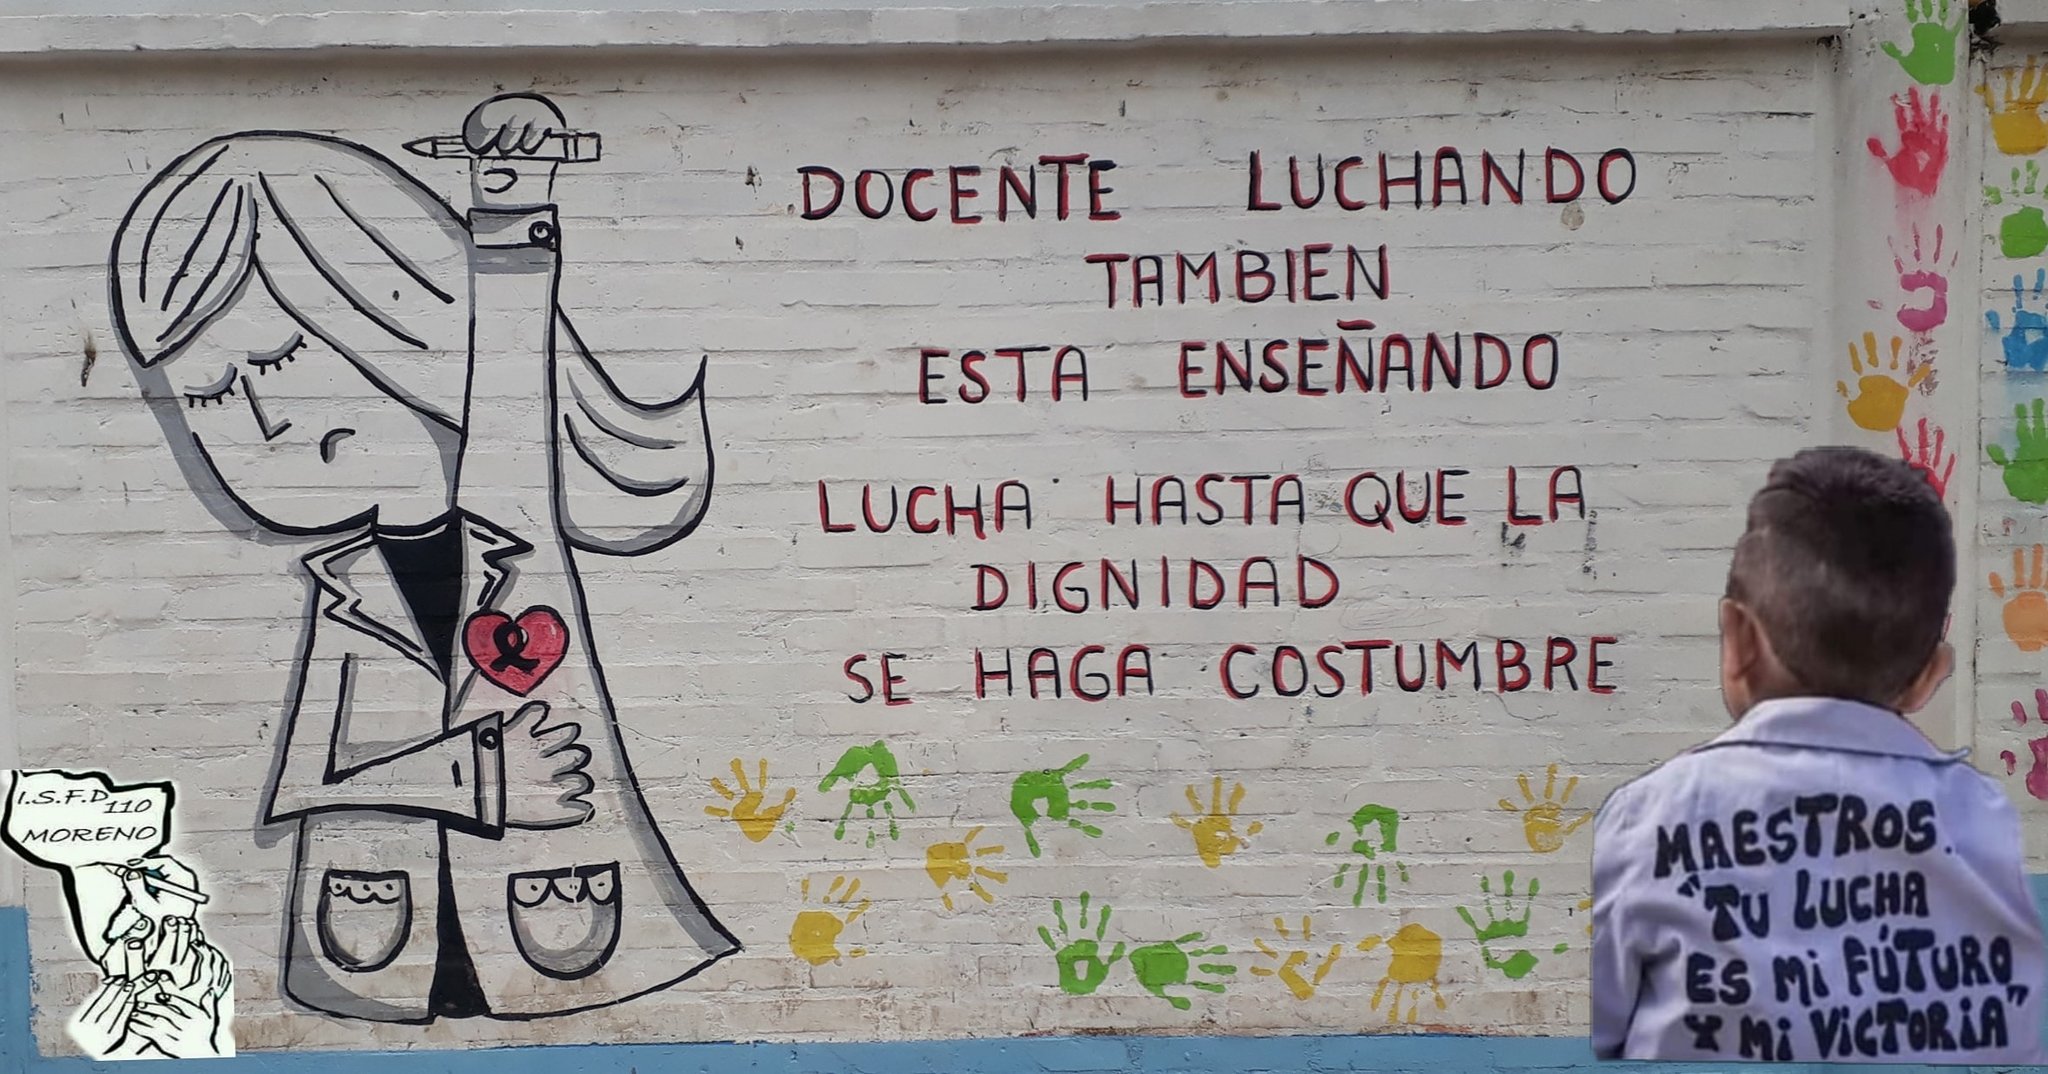 DOCENTE LUCHANDO
TAMBIEN
ESTA ENSEÑANDO
LUCHA HASTA QUE LA
DIGNIDAD
SE HAGA COSTUMBRE
I.S.F.D 110
MORENO
MAESTROS.
"TU LUCHA
ES Mi FÚTURO
Y Mi VicTORiA"